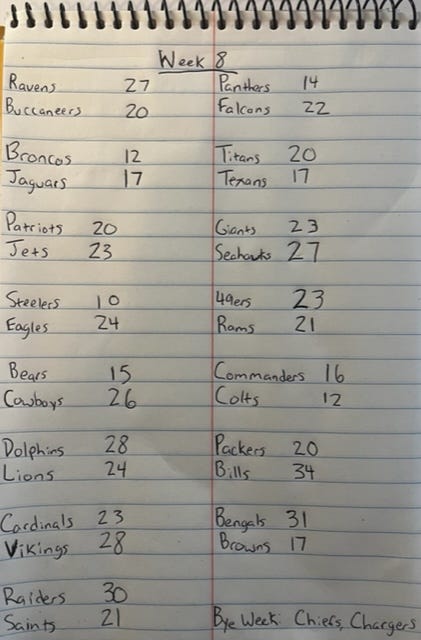 Week 8
Ravens 27
Buccaneers 20
Broncos 12
Jaguars 17
Patriots 20
Jets 23
Steelers 10
Eagles 24
Bears 15
Cowboys 26
Dolphins 28
Lions 24
Cardinals 23
Vikings 28
Raiders 30
Saints 21
Panthers 14
Falcons 22
Titans 20
Texans 17
Giants 23
Seahawks 27
49ers 23
Rams 21
Commanders 16
Colts 12
Packers 20
Bills 34
Bengals 31
Browns 17
Bye Week: Chiefs, Chargers